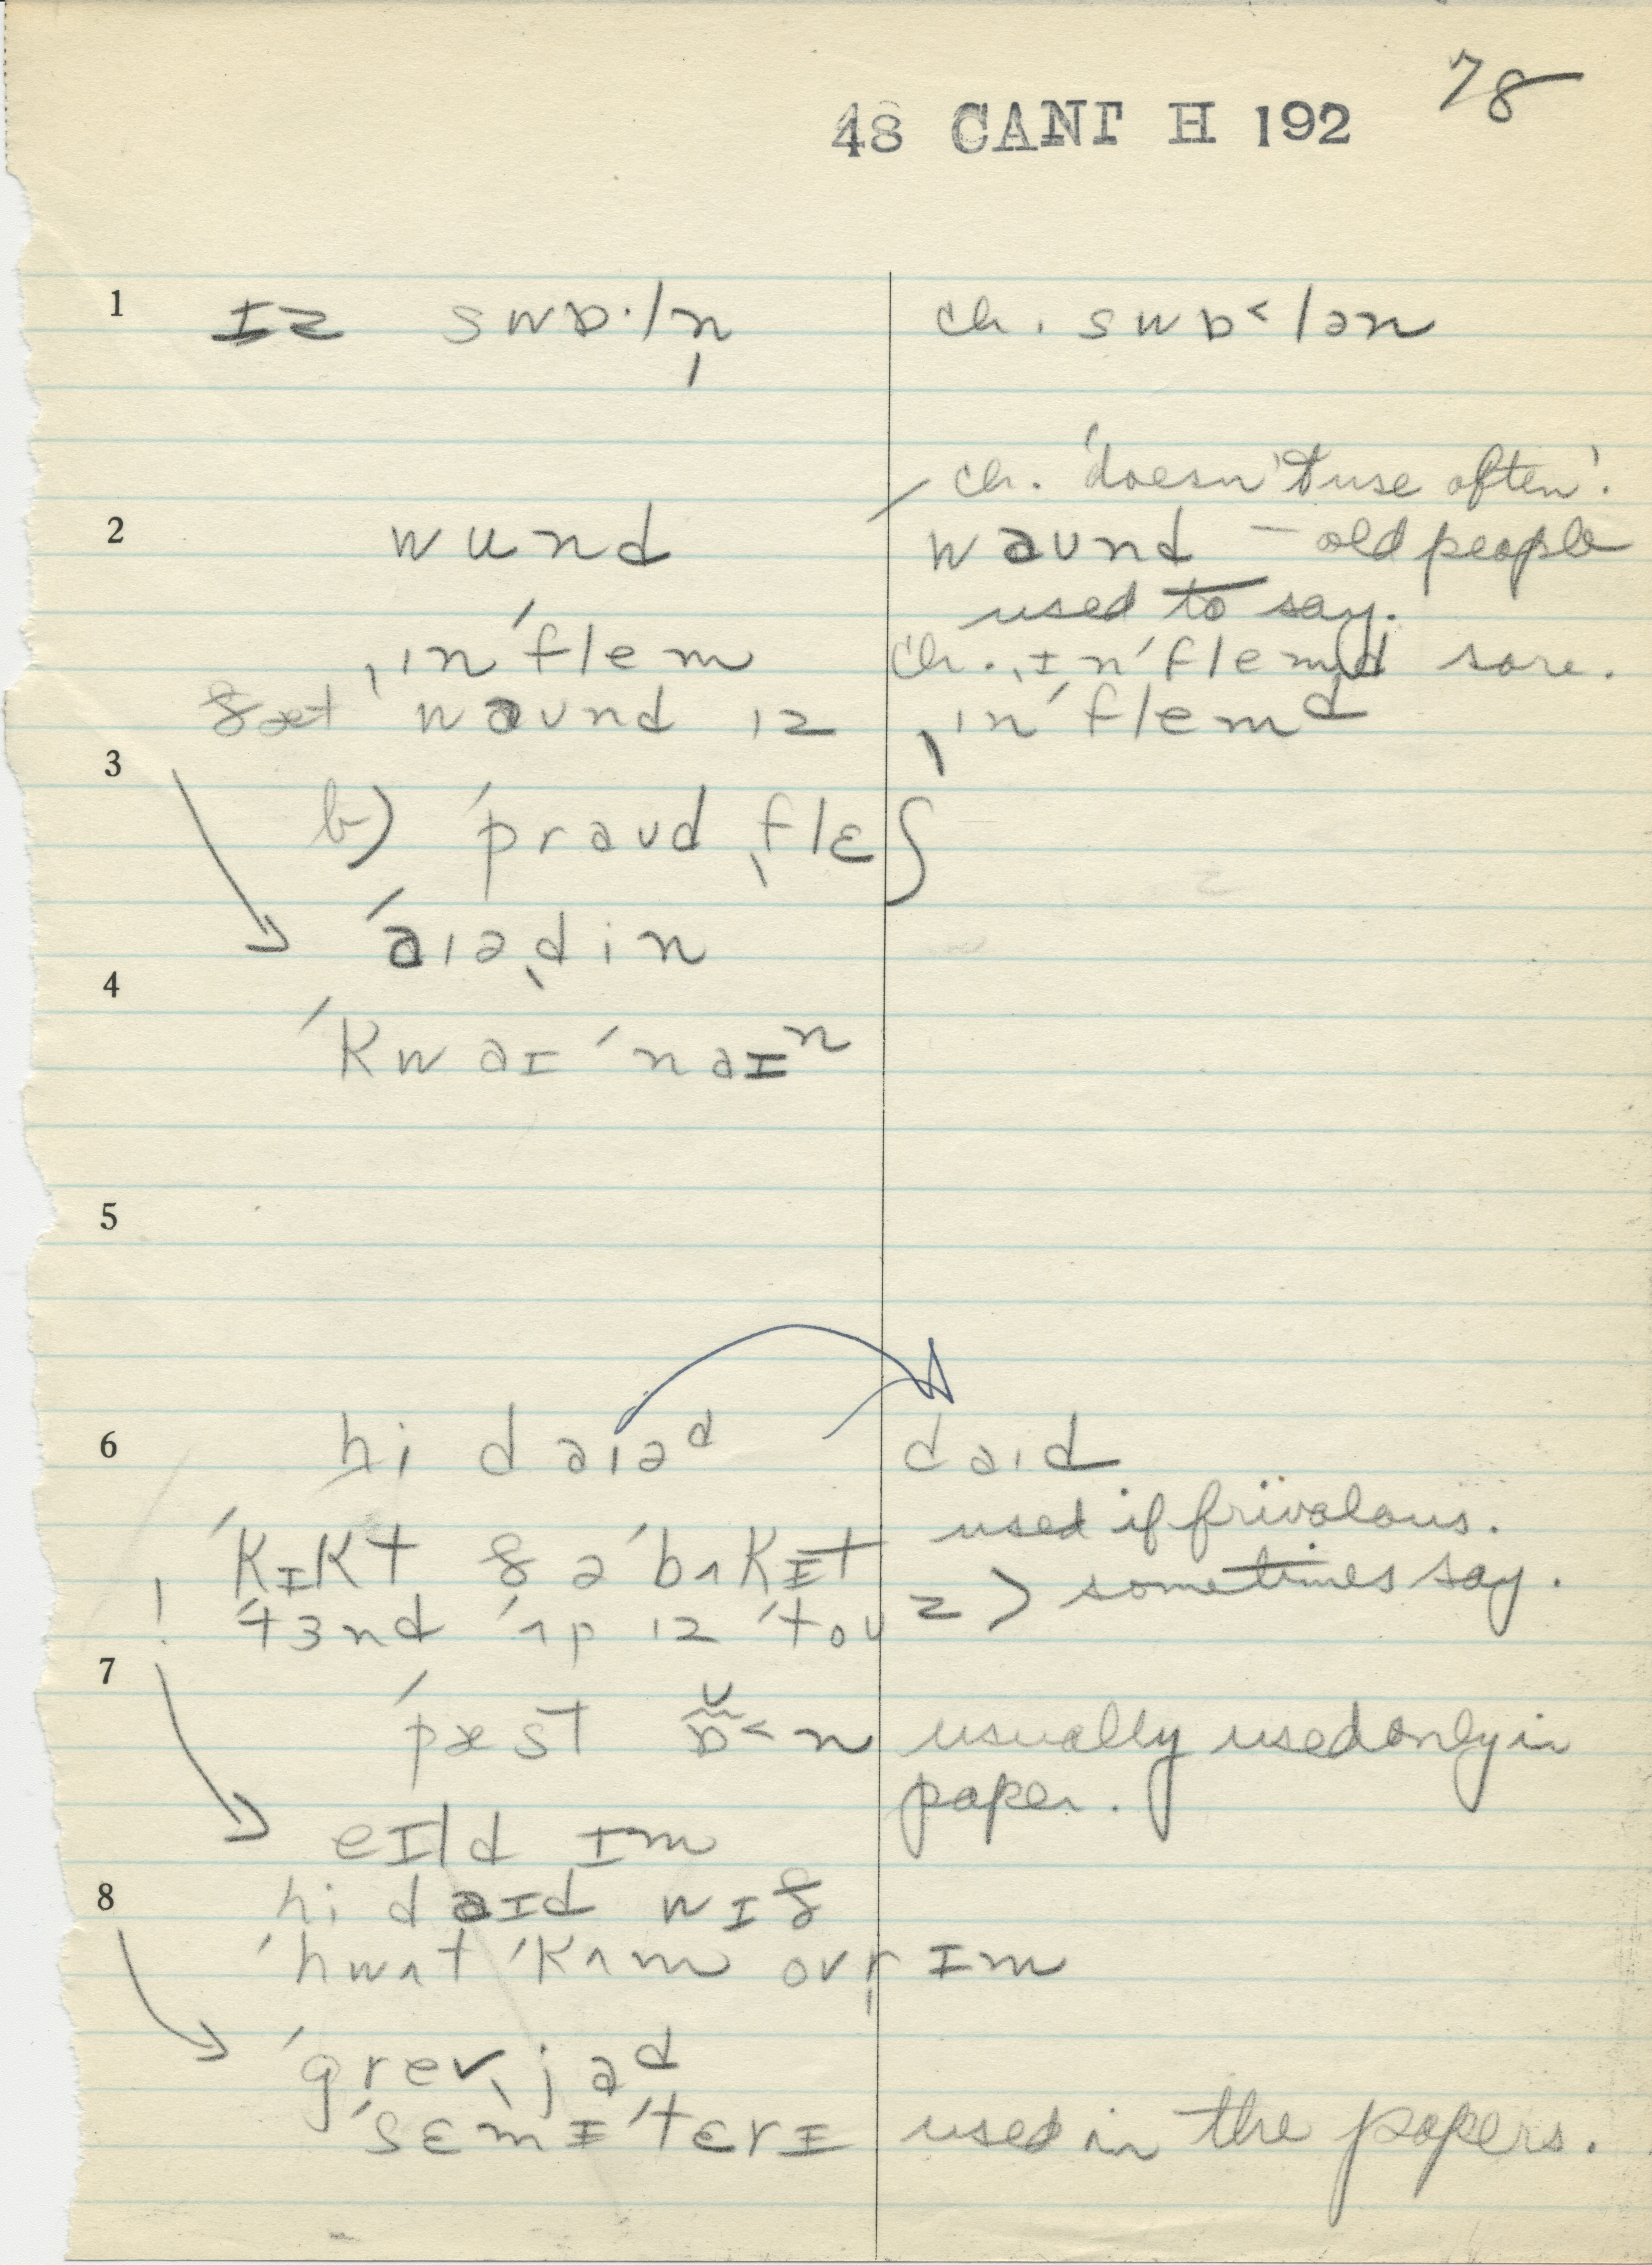 78
48 CANT H 192
1 ɪz swɒ·ln̩ ch. swɒ˂lən
ch. 'doesn't use often'.
2 wund waʊnd – old people
used to say.
ˌin´flem ch. ˌɪn´flemd sore.
ðæt waʊnd ɪz ˌin´flemᵈ
3
b) ´praʊd ˌflɛʃ
´aɪəˌdin
4
´kwaɪ´naɪⁿ
5
6 hi daɪəᵈ daɪd
used if frivolous.
´kɪkt ðə ´bʌkɪt
! ´tɜnd ´ʌp ɪz ´toʊz > sometimes say.
7
´pæst ɒ̮˂n usually used only in
paper.
eɪld ɪm
8 hi daɪd wɪð
´hwʌt ´kʌm ovr̩ ɪm
´grevˌjaᵈ
´sɛmɪ´tɛrɪ used in the papers.